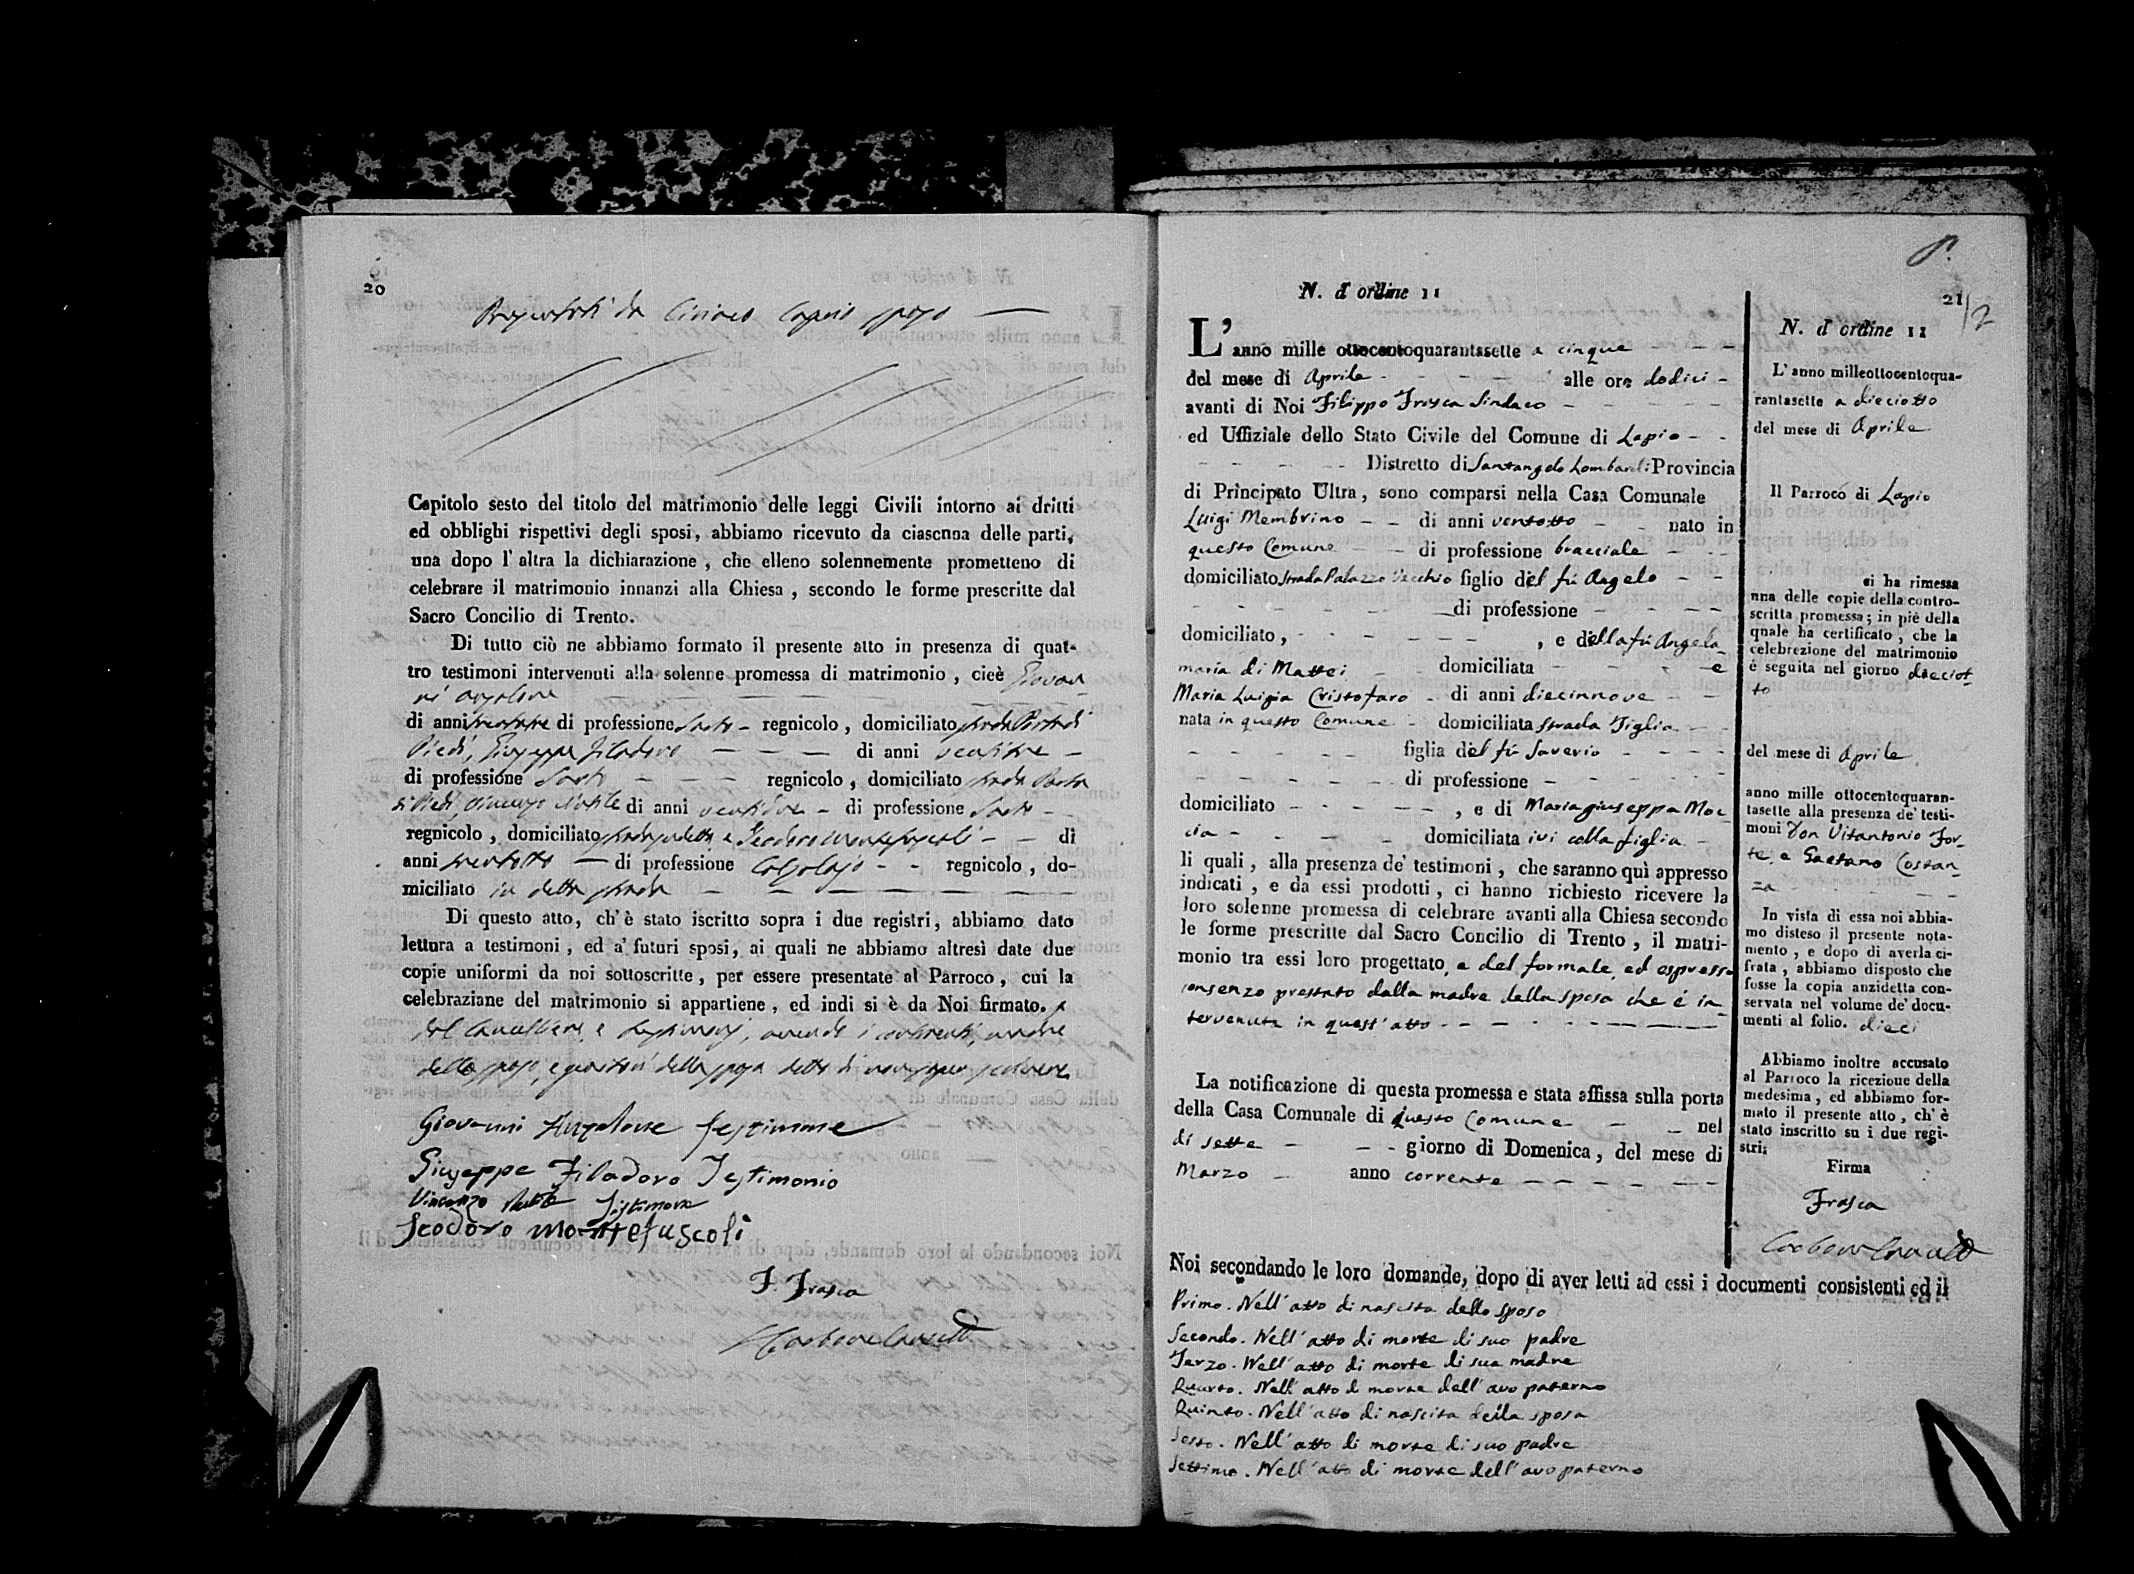 20
di Ciriaco Caprio sposo
Capitolo sesto del titolo del matrimonio delle leggi Civili intorno ai dritti
ed obblighi rispettivi degli sposi, abbiamo ricevuto da ciascnna delle parti,
una dopo l' altra la dichiarazione , che elleno solennemente prometteno di
celebrare il matrimonio innanzi alla Chiesa , secondo le forme prescritte dal
Sacro Concilio di Trento.
Di tutto ciò ne abbiamo formato il presente atto in presenza di quat-
tro testimoni intervenuti alla solenne promessa di matrimonio , cieè Giovan
ni Angelone
di anni di professione Sarto - regnicolo , domiciliato strada Porta di
Piedi, Giuseppe Filadoro di anni ventitre
di professione Sarto regnicolo , domiciliato strada Porta
di Piedi, Vincenzo di anni ventidue - di professione Sarto
regnicolo , domiciliato strada sudetta, e Teodoro Montefuscoli di
anni di professione Calzolajo regnicolo , do-
miciliato in detta strada
Di questo atto, ch' è stato iscritto sopra i due registri, abbiamo dato
lettura a testimoni , ed a' futuri sposi, ai quali ne abbiamo altresì date due
copie uniformi da noi sottoscritte , per essere presentate al Parroco , cui la
celebraziane del matrimonio si appartiene , ed indi si è da Noi firmato.
dal Cancelliere, e testimonj, avendo i contraenti, madre
dello sposo, e genitori della sposa detto di non saper scrivere
Giovanni Angelone testimone
Giuseppe Filadoro Testimonio
Vincenzo Testimone
Teodoro Montefuscoli
F. Frasca
N. d' ordine 11
21
L' anno mille ottocentoquarantasette a cinque
del mese di Aprile alle ore dodici -
avanti di Noi Filippo Frasca Sindaco
ed Uffiziale dello Stato Civile del Comune di Lapio
Distretto di Santangelo Lombardi Provincia
di Principato Ultra , sono comparsi nella Casa Comunale
Luigi Membrino di anni ventotto nato in
questo Comune di professione bracciale
domiciliato strada Palazzo Vecchio figlio del fù Angelo
di professione
domiciliato , , e della fù Angela
maria di Mattei domiciliata e
Maria Luigia Cristofaro di anni diecinnove
nata in questo Comune domiciliata strada Tiglia
figlia del fù Saverio
di professione
domiciliato , e di Mariagiuseppa Moc
cia domiciliata ivi colla figlia
li quali , alla presenza de' testimoni , che saranno quì appresso
indicati , e da essi prodotti , ci hanno richiesto ricevere la
loro solenne promessa di celebrare avanti alla Chiesa secondo
le forme prescritte dal Sacro Concilio di Trento , il matri-
monio tra essi loro progettato, e del formale, ed espresso
consenzo prestato dalla madre della sposa che è in
tervenuta in quest' atto
La notificazione di questa promessa e stata affissa sulla porta
della Casa Comunale di questo Comune nel
di sette giorno di Domenica , del mese di
Marzo anno corrente
Noi secondando le loro domande, dopo di aver letti ad essi i documenti consistenti ed il
Primo. Nell' atto di nascita dello sposo
Secondo. Nell' atto di morte di suo padre
Terzo. Nell' atto di morte di sua madre
Quarto. Nell' atto di morte dell' avo paterno
Quinto. Nell' atto di nascita della sposa
Sesto. Nell' atto di morte di suo padre
Settimo. Nell' atto di morte dell' avo paterno
N. d' ordine 11
L' anno milleottocentoqua-
rantasette a dieciotto
del mese di Aprile
Il Parroco di Lapio
ci ha rimessa
una delle copie della contro-
scritta promessa; in piè della
quale ha certificato , che la
celebrezione del matrimonio
è seguita nel giorno dieciot
to
del mese di Aprile
anno mille ottocentoquaran-
tasette alla presenza de' testi-
moni Don Vitantonio For-
te, e Gaetano Costan-
za
In vista di essa noi abbia-
mo disteso il presente nota-
mento , e dopo di averla ci-
frata , abbiamo disposto che
fosse la copia anzidetta con-
servata nel volume de' docu-
menti al folio. dieci
Abbiamo inoltre accusato
al Parroco la ricezione della
medesima , ed abbiamo for-
mato il presente atto , ch' è
stato inscritto su i due regi-
stri;
Firma
Frasca